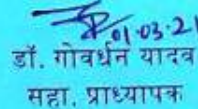 01.03.21
डॉ. गोवर्धन यादव
सहा. प्राध्यापक